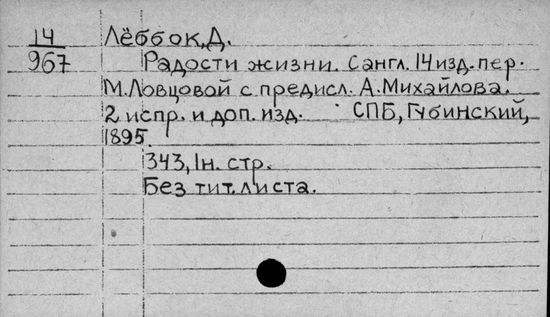 14
967
Лёббок, Д.
Радости жизни. С англ. 14 изд. пер.
М. Ловцовой с предисл. А. Михайлова.
2 испр. и доп. изд. СПБ, Губинский,
1895.
343, 1 н. стр.
Без тит. листа.